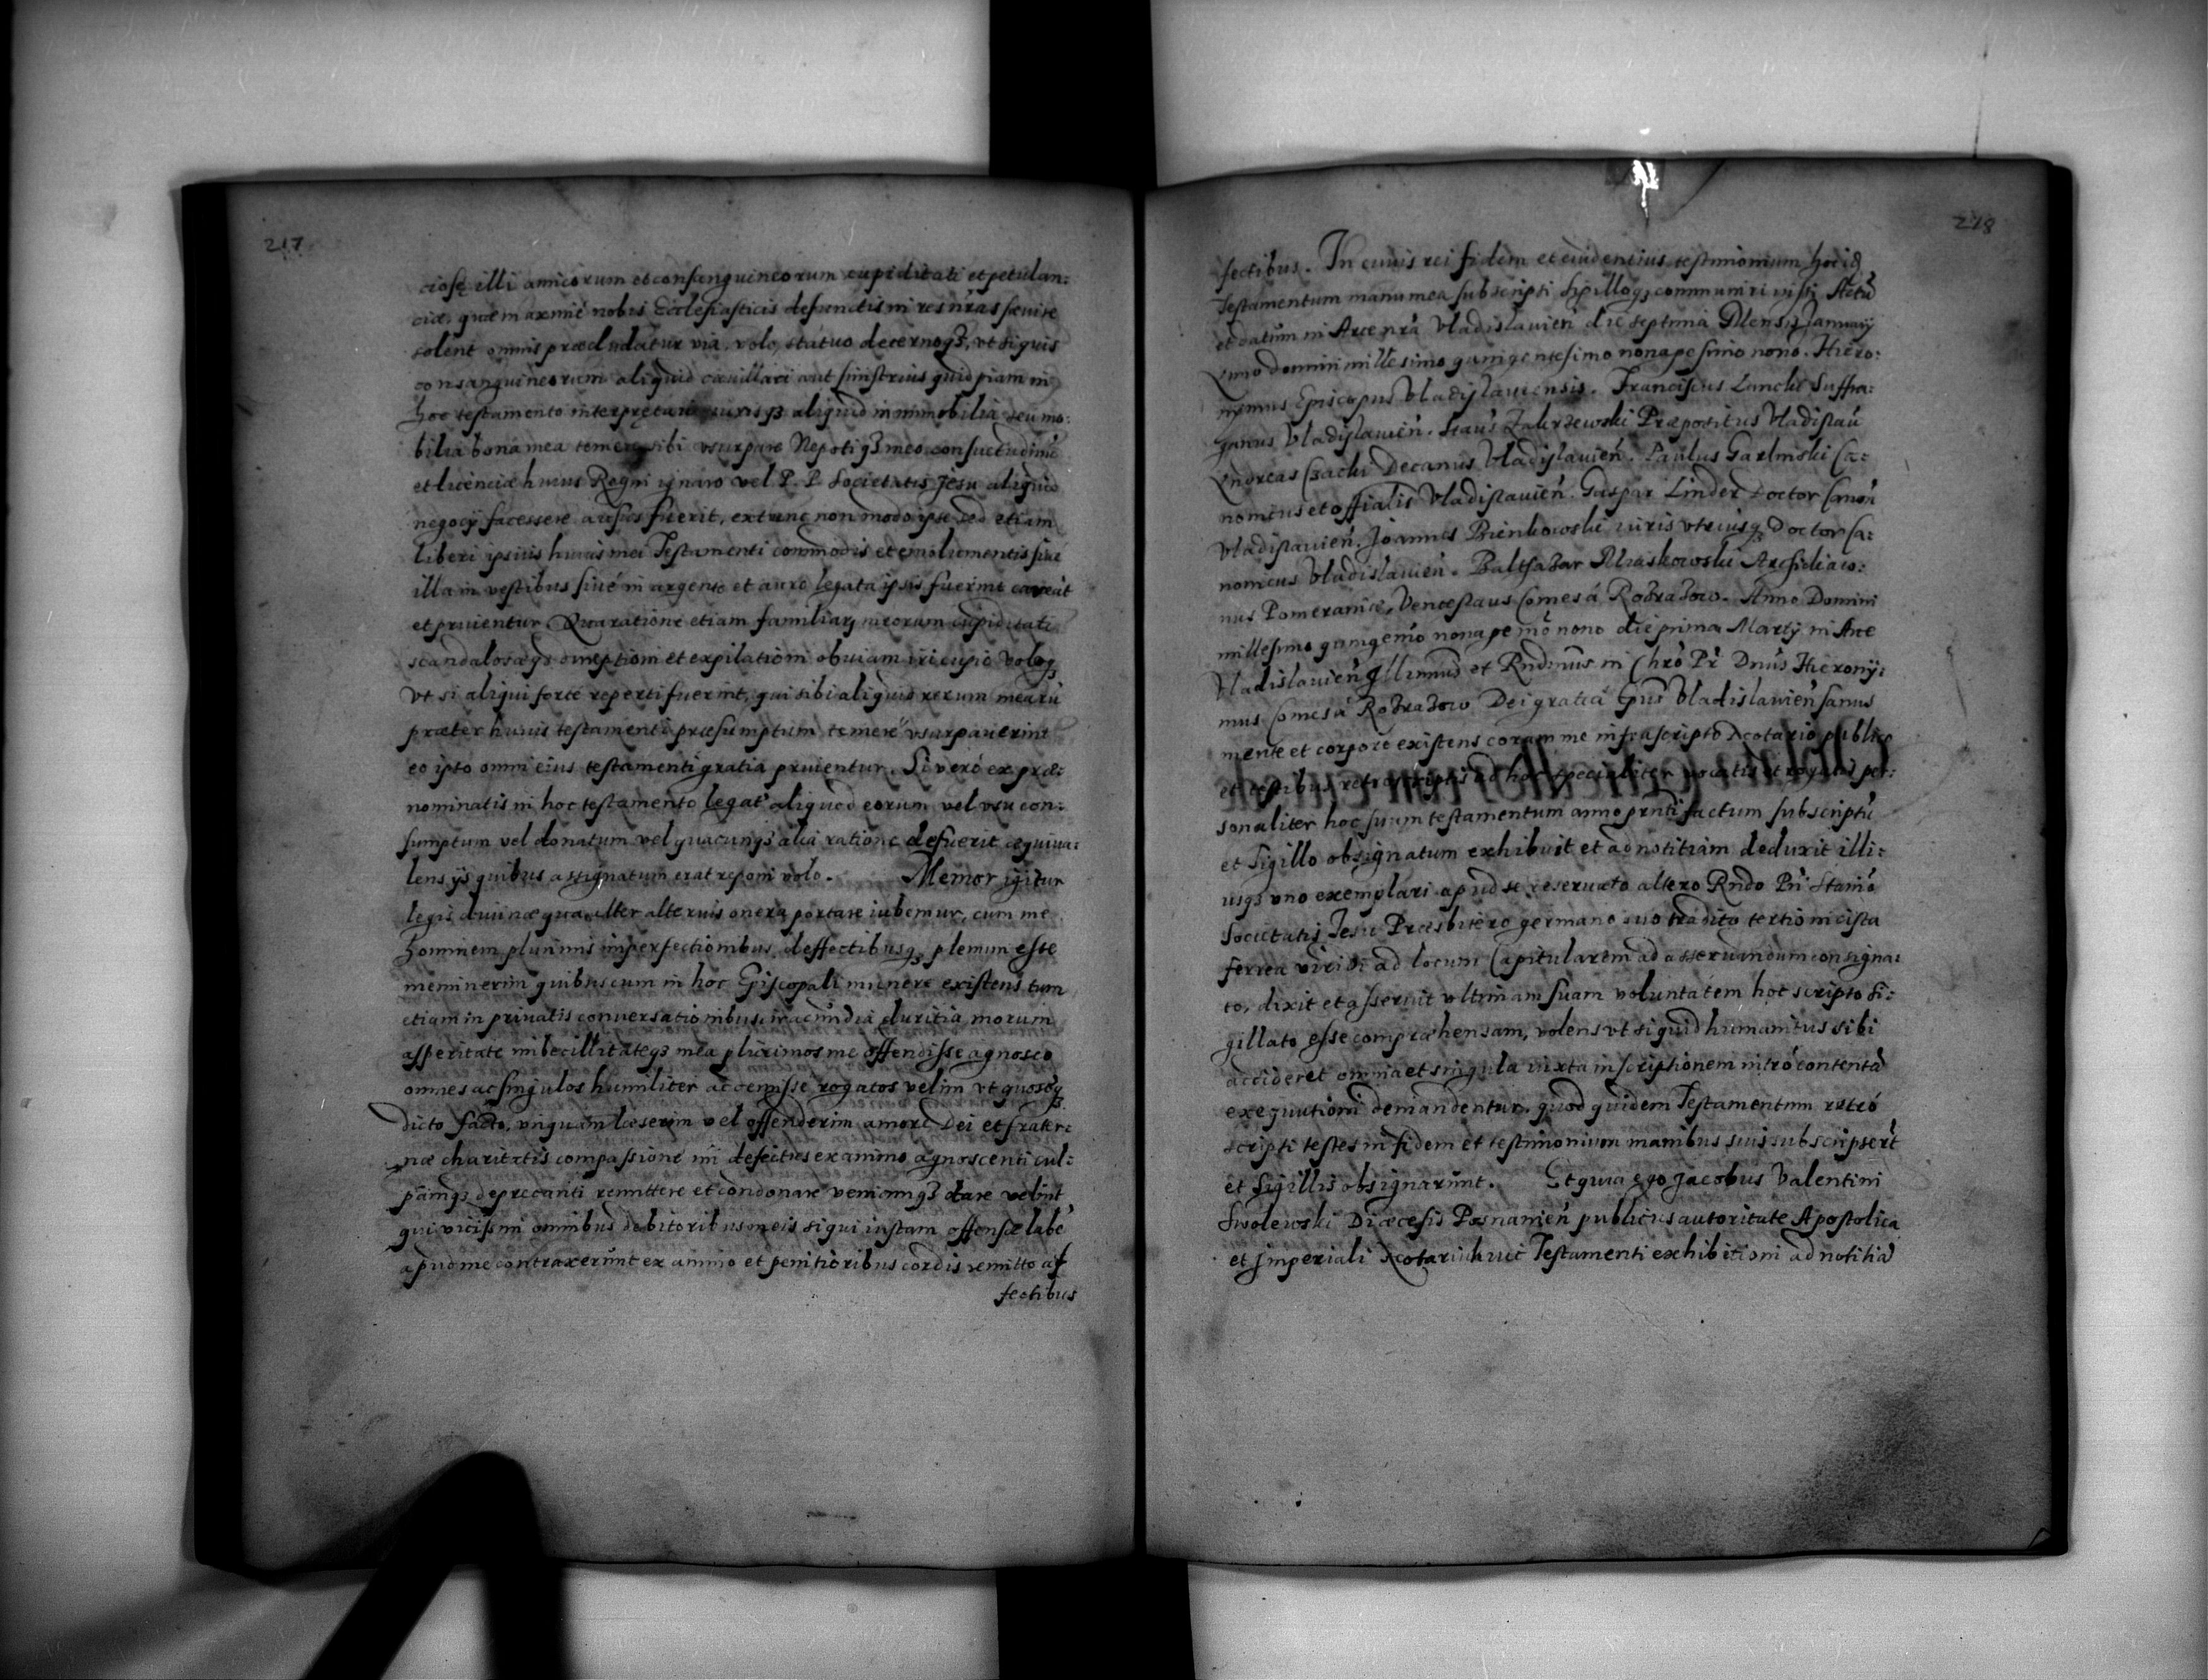 217
ciosę illi amicorum et consanguineorum cupiditati et petulan:
ciæ, quæ maxime nobis Ecclesiasticis defunctis in res nr̃as sæuire
solent omnis præcludatur via, volo, statuo decernoq3, vt siquis
consanguineorum aliquid cauillari aut sinistrius quidpiam in
hoc testamento interpretari iurisq3 aliquid in immobilia seu mo:
bilia bona mea temere sibi vsurpare Nepotiq3 meo consuetudinū
et licencia huius Regni ignaro vel P. P. Societatis Jesu aliquid
negocÿ facessere ausus fuerit, extunc non modo ipse sed etiam
liberi ipsius huius mei Testamenti commodis et emolumentis siue
illa in vestibus siue in argento et auro legata ipsis fuerint careāt
et priuientur. Qua ratione etiam familiarȝ meorum cupiditati
scandalosæq3 direptioni et expilationi obuiam iri cupio voloq3
Vt si aliqui forte reperti fuerint, qui sibi aliquid rerum mearū
præter huius testamenti præsumptum temere vsurpauerint
eo ipso omni eius testamenti gratia priuentur. Si verò ex præ:
nominatis in hoc testamento legat' aliquod eorum vel vsu con:
sumptum vel donatum vel quacunq3 alia ratione defuerit æquiua:
lens ÿs quibus assignatum erat reponi volo. Memor igitur
legis diuinæ qua alter alterius onera portare iubemur, cum me
hominem plurimis imperfectionibus, deffectibusq3 plenum esse
meminerim quibuscum in hoc Episcopali munere existens tum
etiam in priuatis conversationibus, iracundia duritia morum
asperitate imbecillitateq3 mea plurimos me offendisse agnosco
omnes ac singulos humiliter ac demisse rogatos velim vt quoscq3
dicto facto, vnquam læserim vel offenderim amore Dei et frater:
næ charitatis compassione mi defectus ex animo agnoscenti cul:
pamq3 deprecanti remittere et condonare veniamq3 dare velint
qui vicissim omnibus debitoribus meis siqui iustam offensæ labē
apud me contraxerunt ex animo et penitioribus cordis remitto af
fectibus
218
fectibus. In cuius rei fidem et euidentius testimonium hoc
Testamentum manu mea subscripsi Sigilloq3 communiri iussi Actū
et datum in Arce nr̃a Vladislavieñ die septima Mensis Januarÿ
Anno domini millesimo quingentesimo nonagesimo nono. Hiero:
nymus Episcopus Vladislauiensis. Franciscus Lancki Suffra:
ganus Vladislavień. Staus Zakrzewski Præpositus Vladislau
Andreas Czacki Decanus Vladislauień. Paulus Garlinski Ca:
nonicus et offialis Vladislauień. Gaspar Linder doctor Canon
Vladislauień. Joannes Bienkowski iuris vtriusq3 Doctor Ca:
nonicus Vladislauień. Balthazar Miaskowski Archidiaco:
nus Pomeraniæ, Venceslaus Comes á Rozrazow. Anno Domini
millesimo quingeño nonagemo nono die prima Martÿ in Arce
Vladislavień Illimus et Rndmus in Chrō Pr̃ Dnus Hieronÿ:
mus Comes á Rozrazow Dei gratia Epus Vladislavień sanus
mente et corpore existens coram me infrascripto Notario publico
et testibus retroscriptis ad hoc specialiter vocatis et rogatis per:
sonaliter hoc suum testamentum anno prnti factum subscriptū
et Sigillo obsignatum exhibuit et ad notitiam deduxit illi:
usq3 vno exemplari apud se reseruato altero Rndo Pri Stanio
Societatis Jesu Præsbitero germano suo tradito tertio in cista
ferrea viridi ad locum Capitularem ad asseruandum consigna:
to, dixit et asseruit vltimam suam voluntatem hoc scripto Si:
gillato esse compræhensam, volens vt siquid humanitus sibi
accideret omnia et singula iuxta inscriptionem intrò contentā
exequutioni demandentur, quod quidem Testamentum retró
scripti testes in fidem et testimonium manibus suis subscripserūt
et Sigillis obsignarunt. Et quia ego Jacobus Valentini
Swolewski Diæcesis Posnanień publicus autoritate Apostolica
et Imperiali Notarius huic Testamenti exhibitioni ad notitiā